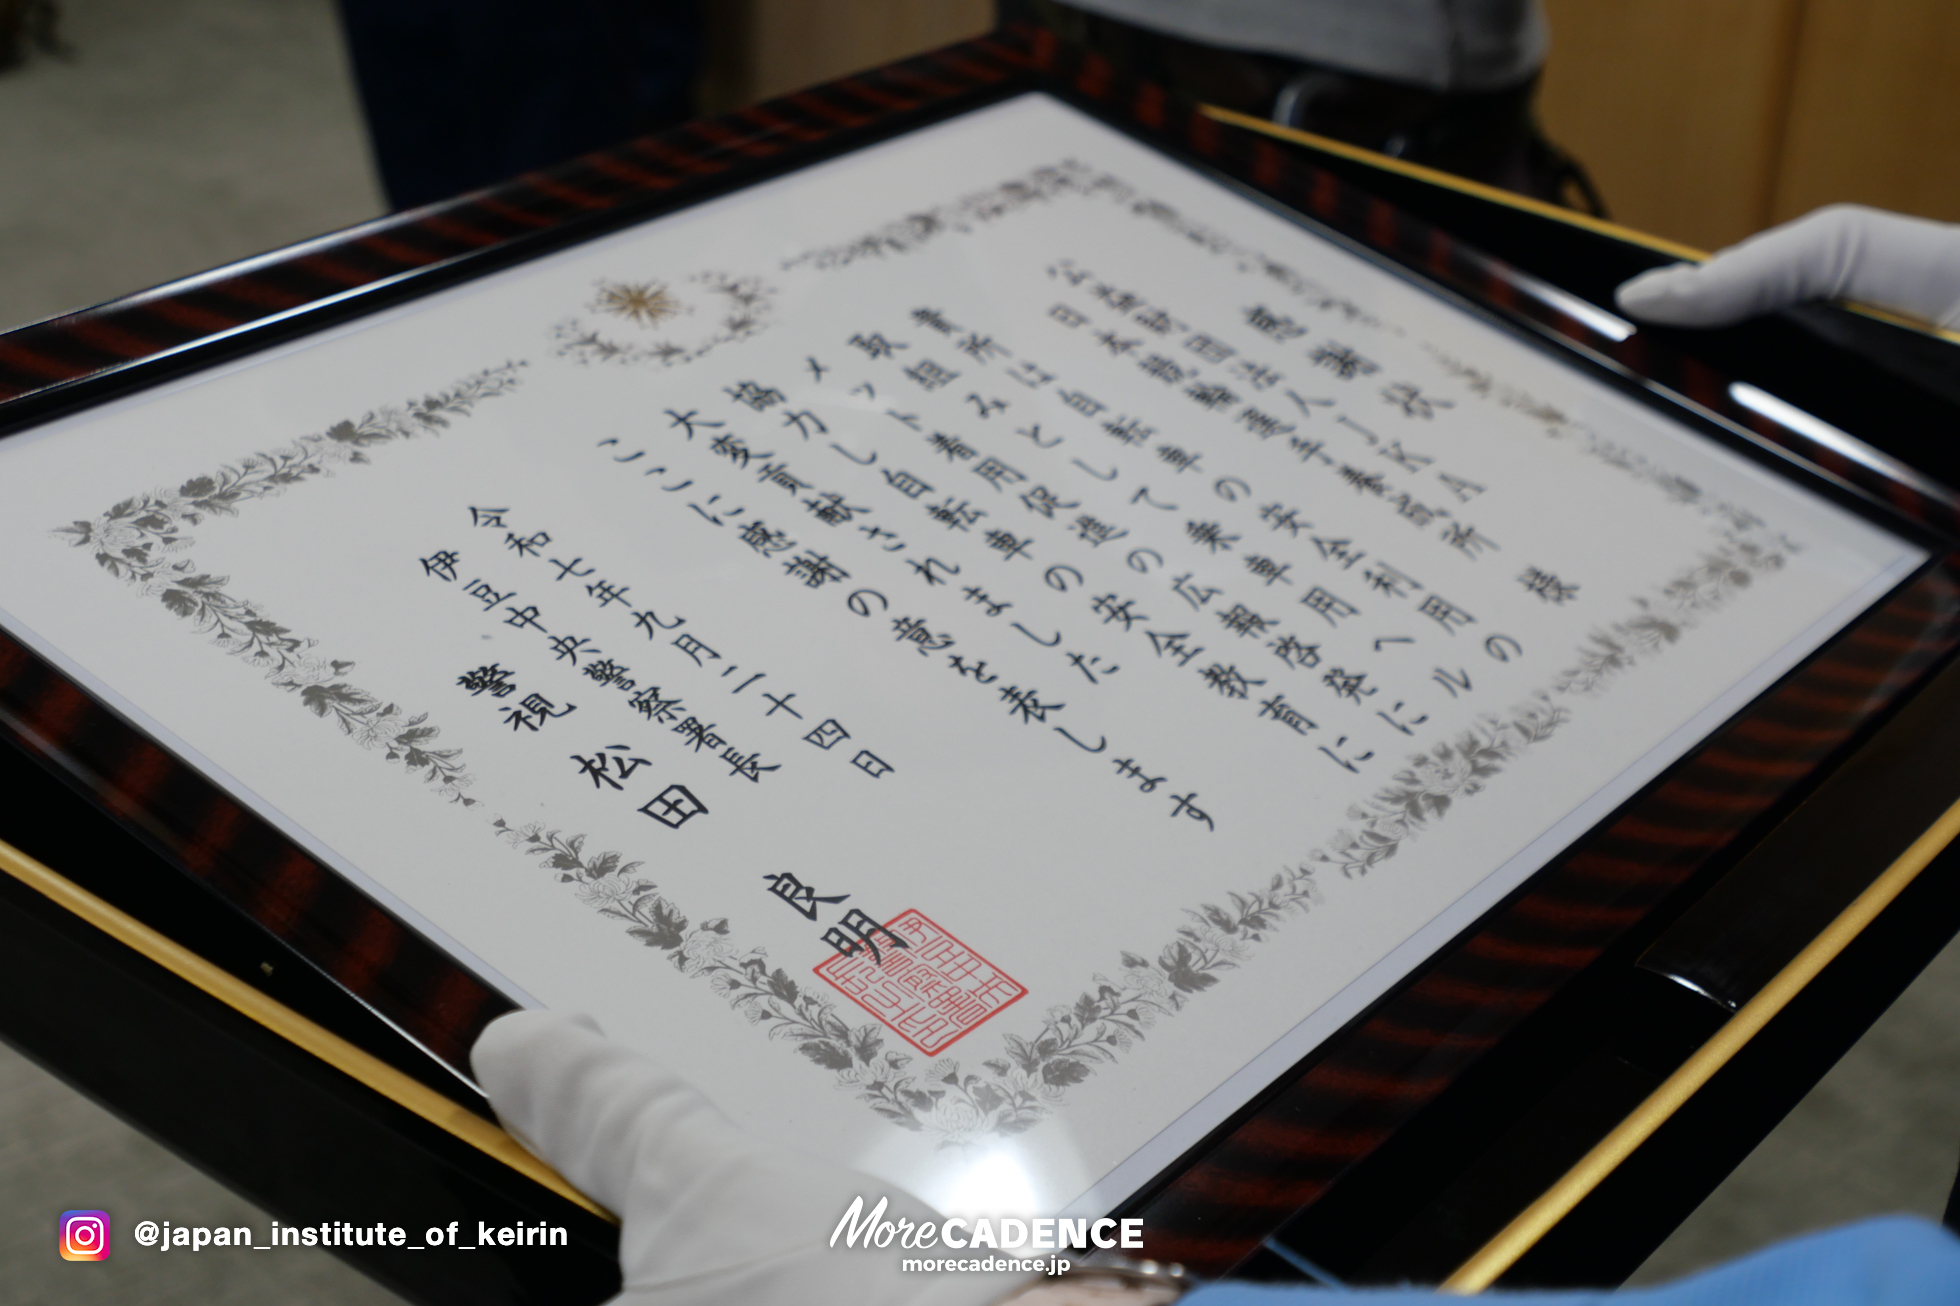 感謝状
公益財団法人JKA
日本競輪選手養成所 様
貴所は自転車の安全利用の
取組みとして乗車用ヘル
メット着用促進の広報啓発に
協力し自転車の安全教育に
大変貢献されました
ここに感謝の意を表します
令和七年九月二十四日
伊豆中央警察署長
警視 松田 良明
@japan_institute_of_keirin
More CADENCE
morecadence.jp